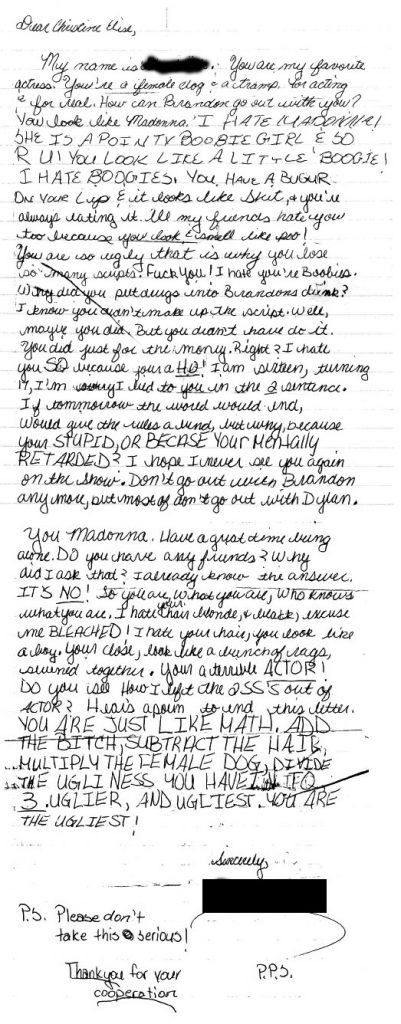 Dear Christine Elise,
My name is . You are my favorite
actress. You're a female dog & a tramp. for acting
& for real. How can Brandon go out with you?
You look like Madonna! I HATE MADONNA!
SHE IS A POINTY BOOBIE GIRL & SO
R U! YOU LOOK LIKE A LITTLE BOOGIE!
I HATE BOOGIES. YOU HAVE A BUGUR
ON YOUR Lip & it looks like shit, & you're
always eating it. All my friends hate you
too because you look & smell like poo!
You are so ugly that is why you lose
so many scripts. Fuck You! I hate you're Boobies.
Why did you put drugs into Brandons drink?
I know you didn't make up the script. Well,
maybe you did. But you didn't have do it.
You did just for the money. Right? I hate
you SO because your a HO! I am sixteen, turning
17, I'm sorry I lied to you in the 2 sentance.
If tommorrow the world would end,
would give the rules a bend, but why, because
your STUPID, OR BECASE YOUR MENTALLY
RETARDED? I hope I never see you again
on the show. Don't go out with Brandon
anymore, but most of don't go out with Dylan.
You Madonna. Have a great time being
alone. DO you have any friends? Why
did I ask that? I already know the answer.
IT'S NO! So you are, what you are, who knows
what you are. I hate your hair blonde, & black, excuse
me BLEACHED! I hate your hair, you look like
a boy. Your close, look like a bunch of rags,
sewned together. Your a terrible ACTOR!
Do you see How I left the 2SS'S out of
ACTOR? Hears a poim to end this letter.
YOU ARE JUST LIKE MATH. ADD
THE BITCH, SUBTRACT THE HAIR,
MULTIPLY THE FEMALE DOG, DIVIDE
THE UGLINESS YOU HAVE INTO
3. UGLIER, AND UGLIEST. YOU ARE
THE UGLIEST!
Sincerely,
P.S. Please don't
take this serious!
Thankyou for your
cooperation
P.P.S.